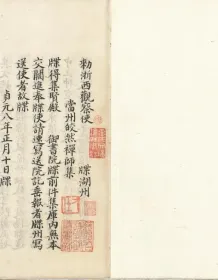 勑浙西觀察使　　牒湖州
當州皎然禪師集
牒得集賢殿　御書院牒前件集庫内無本
交關進奉牒使請速寫送院訖垂報者牒州寫
送使者故牒
貞元八年正月十日牒